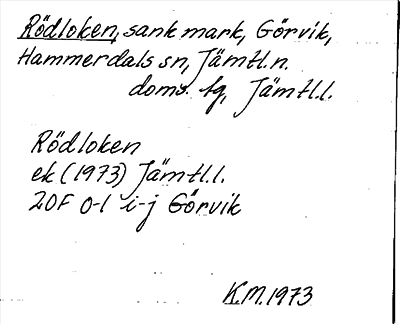 Rödloken, sank mark, Görvik,
Hammerdals sn, Jämtl.n.
doms. fg, Jämtl.l.
Rödloken
ek (1973) Jämtl.l.
20F 0-1 i-j Görvik
K.M. 1973